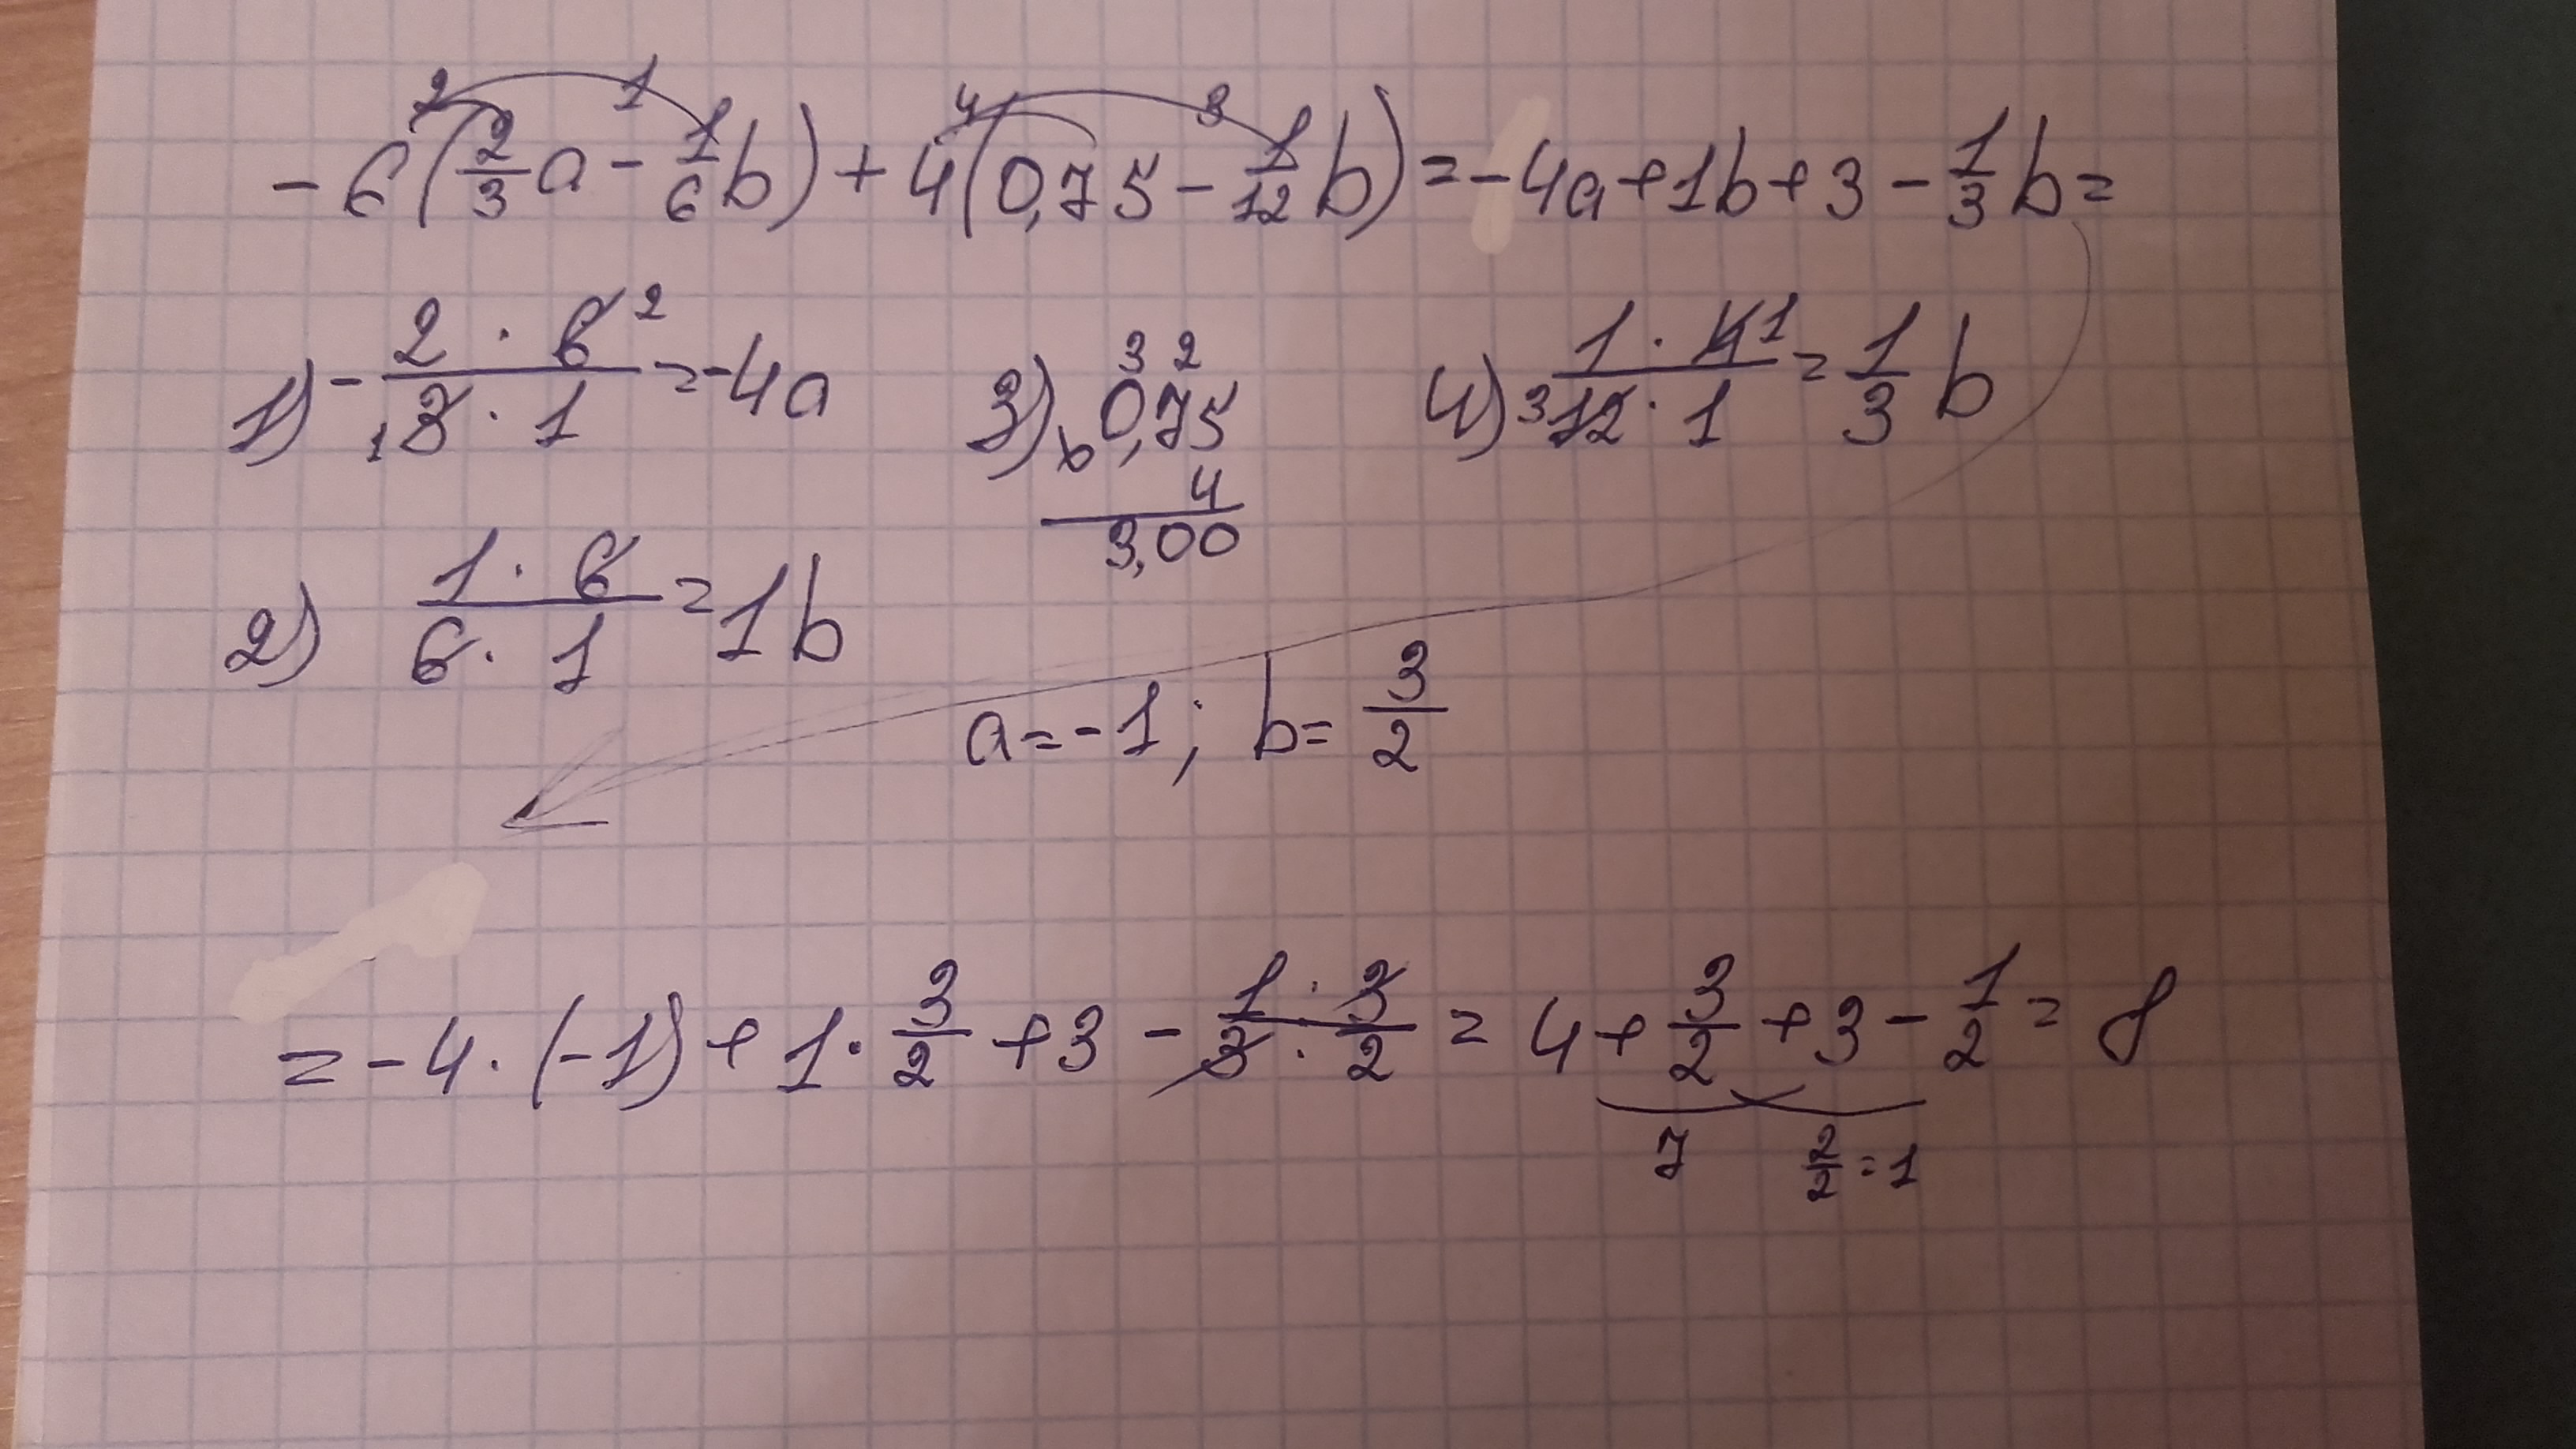 2 1 4 3
-6(2/3 a - 1/6 b) + 4(0,75 - 1/12 b) = -4a + 1b + 3 - 1/3 b =
1) - (2 · 6 2)/(1 3 · 1) = -4a
2) (1 · 6)/(6 · 1) = 1b
3) 3 2
0,75
4
3,00
4) (1 · 4 1)/(3 12 · 1) = 1/3 b
a = -1; b = 3/2
= -4 · (-1) + 1 · 3/2 + 3 - (1 · 3)/(3 · 2) = 4 + 3/2 + 3 - 1/2 = 8
7 2/2 = 1